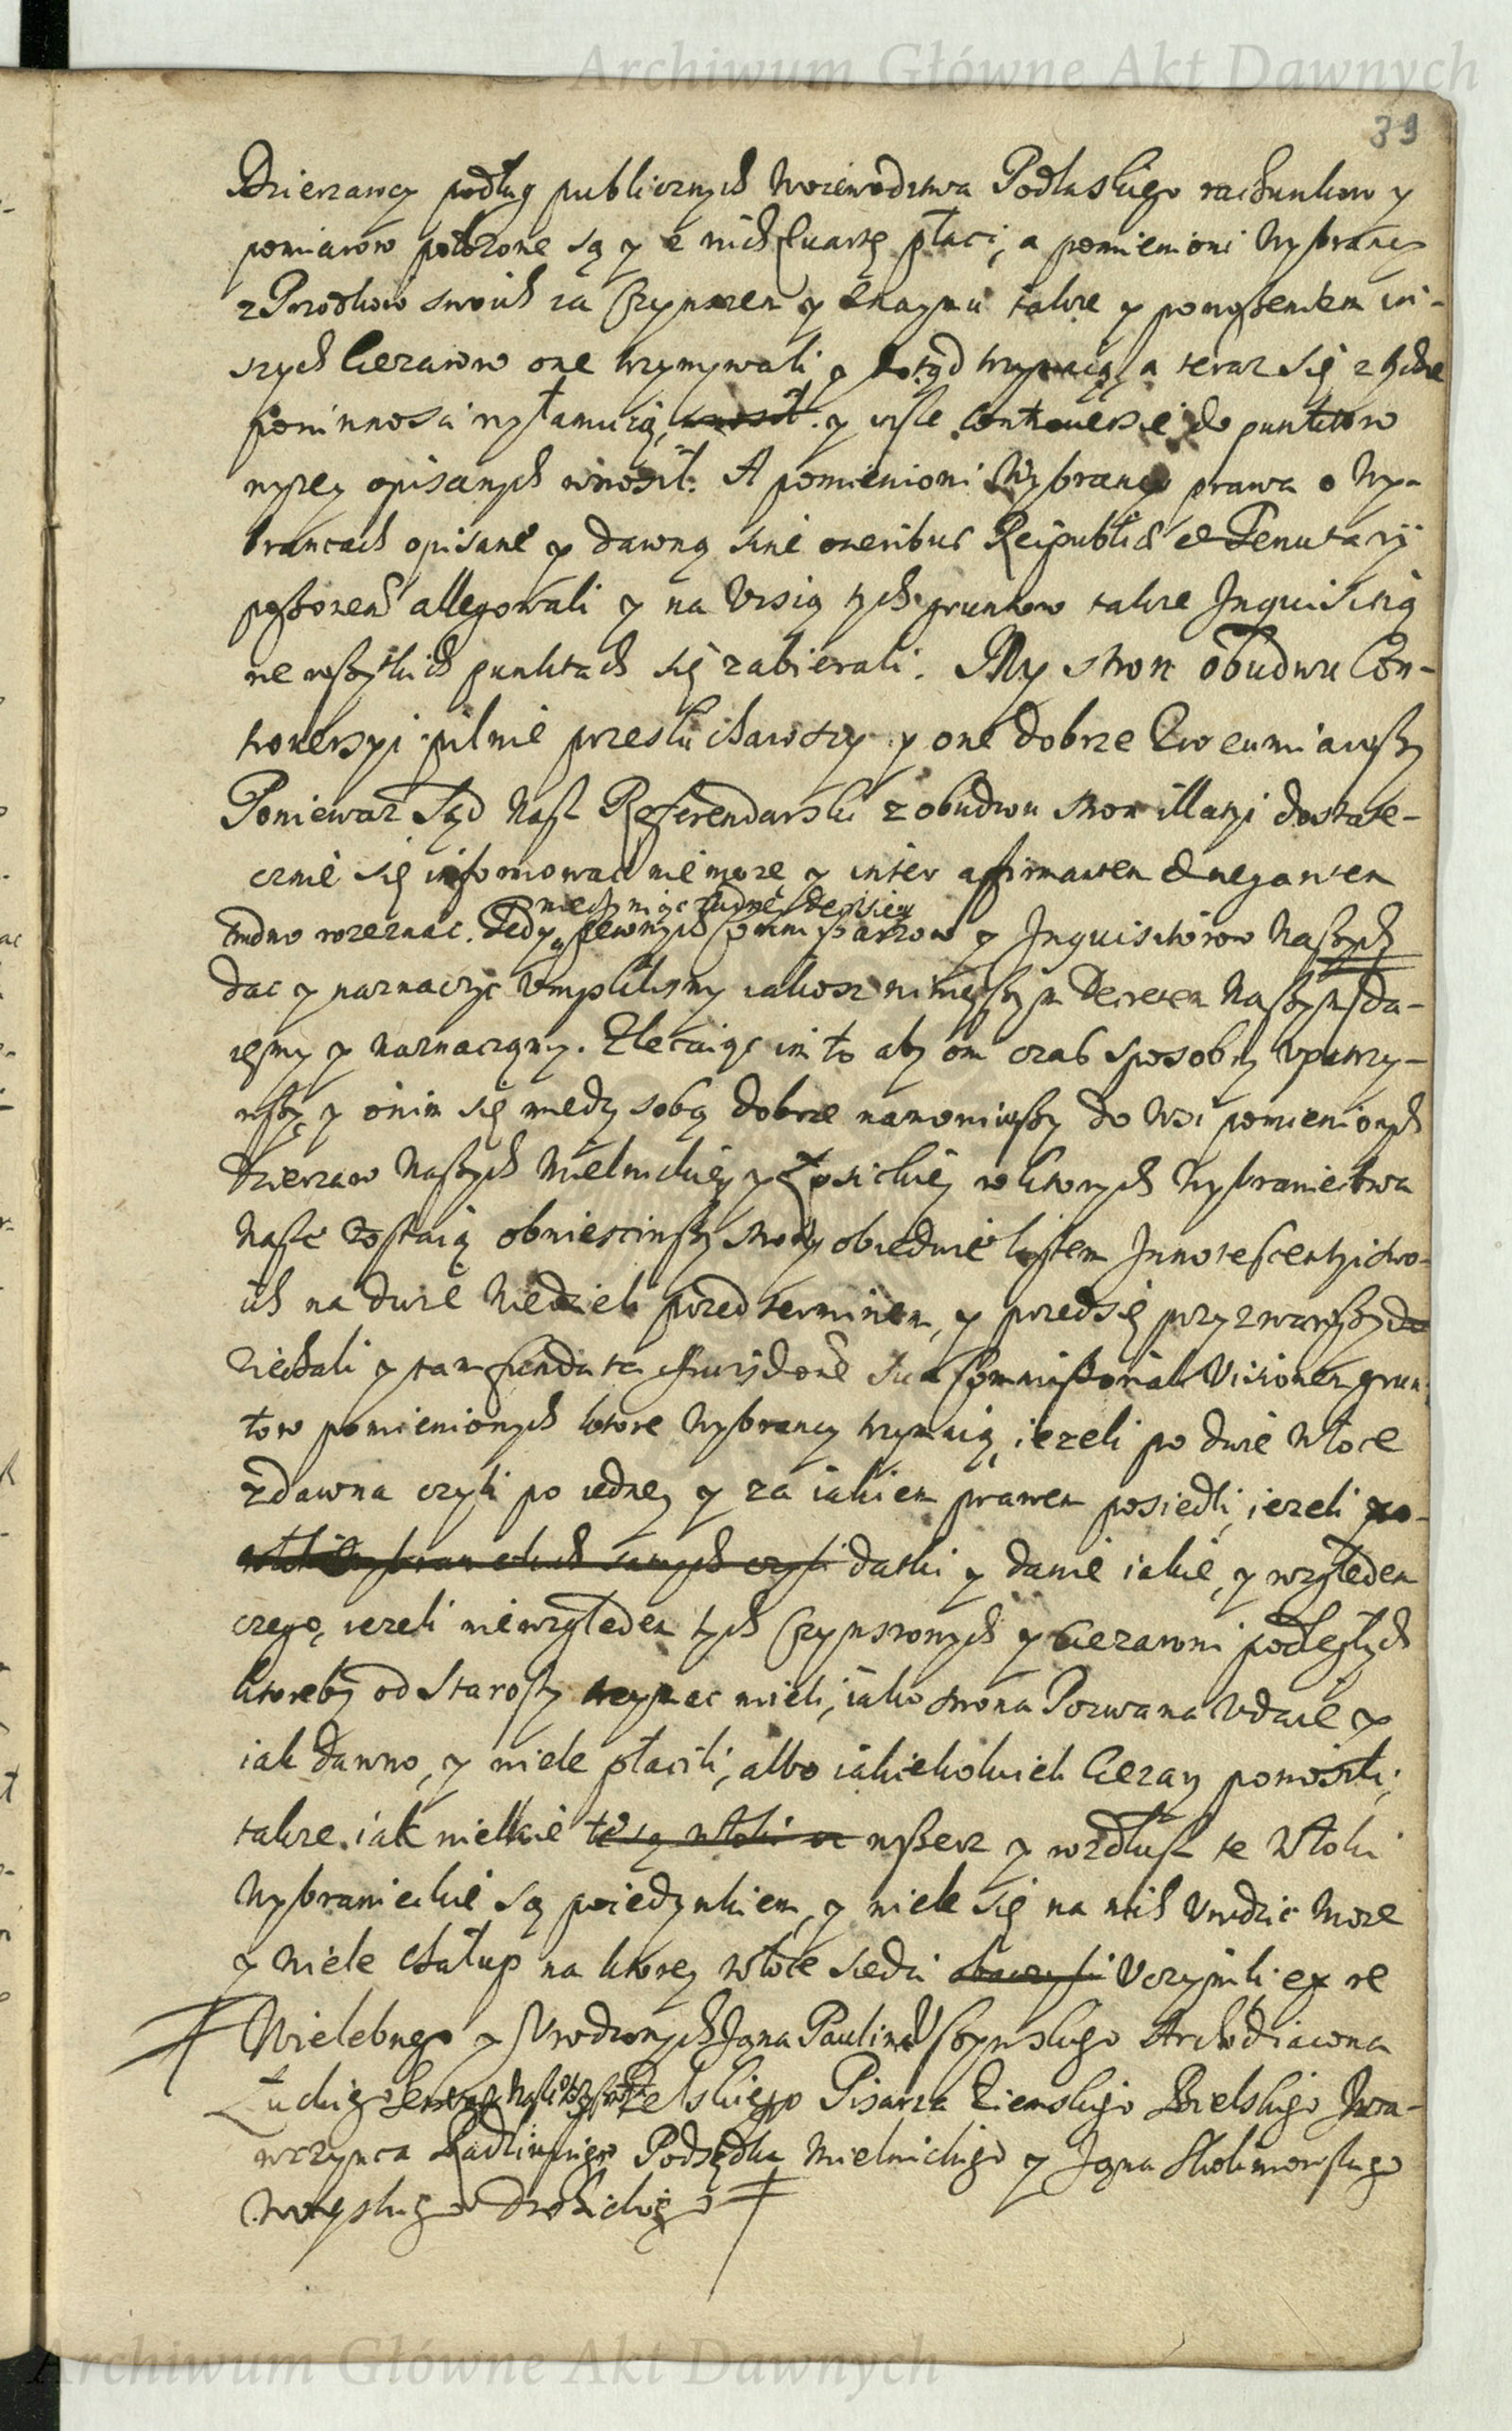 Archiwum Główne Akt Dawnych
39
Dzierzawcy podług publicznych Woiewodztwa Podlaskiego rachunkow y
pomiarow położone są y z nich kwartę płaci, a pomienioni Wybrancy
z Przodkow swoich za Czynszem y także y ponoszeniem in-
szych Ciezarow one trzymywali y dotąd trzymaią, a teraz się z tychze
powinnosci wyłamuią, wnosił y insze Controversie do punktow
wyzey opisanych wnosił. A pomienioni Wybrancy prawa o Wy-
brancach opisane y dawną sine oneribus Reipublicae et Tenutarij
allegowali y na Visią tych gruntow takze Inquisitią
we wszytkich punktach się zabierali. My stron obudwu Con-
trowersyi pilnie przesłuchawszy y one dobrze Zrozumiawszy
Poniewaz Sąd Nasz Referendarski z obudwu stron illacyi dostate-
cznie się informowac nie moze y inter affirmantem et negantem
nieczyniąc zadney decisiey
trudno rozeznac. Tedy pewnych Commissarzow y Inquisitorow Naszych
dac y naznaczyc Vmyslilismy iakosz ninieyszym Decretem Naszym da-
iemy y naznaczamy. Zlecaiąc im to aby oni czas sposobny Vpatrzy-
wszy y onim się miedzy sobą dobrze namowiwszy do Wsi pomienionych
Dzierzaw Naszych Mielnickiey y Łosickiey w ktorych Wybraniectwa
Nasze zostaią obwiesciwszy strony obiedwie listem Innotescentyi swo-
ich na dwie Niedzieli przed terminem, y przed się przyzwawszy
Ziechali y tam fundata Jurisdone sua Commissoriali Visionem grun-
tow pomienionych ktore Wybrancy trzymaią, iezeli po dwie Włoce
zdawna czyli po iedney y za iakiem prawem posiedli, iezeli po-
datki y danie iakie, y względem
czego, iezeli nie względem tych Czynszowych y Ciezarowi podległych
ktoreby od Starosty trzymac mieli, iako strona Pozwana Vdaie y
iak dawno, y wiele płacili, albo iakiekolwiek Ciezary ponosili;
takze iak wielkie te są włoki wszerz y wzdłusz te Włoki
Wybranieckie są poiedynkiem, y wiele się na nich Vrodzic Moze
y wiele Chałup na ktorey włoce siedzi Vczynili ex re
Wielebnego y Vrodzonych Jana Paulina Archidiacona
Pisarza Ziemskiego Bielskiego Wa-
wrzynca Podsędka Mielnickiego y Jana Skolimowskiego
Woyskiego Drohickiego
Archiwum Główne Akt Dawnych